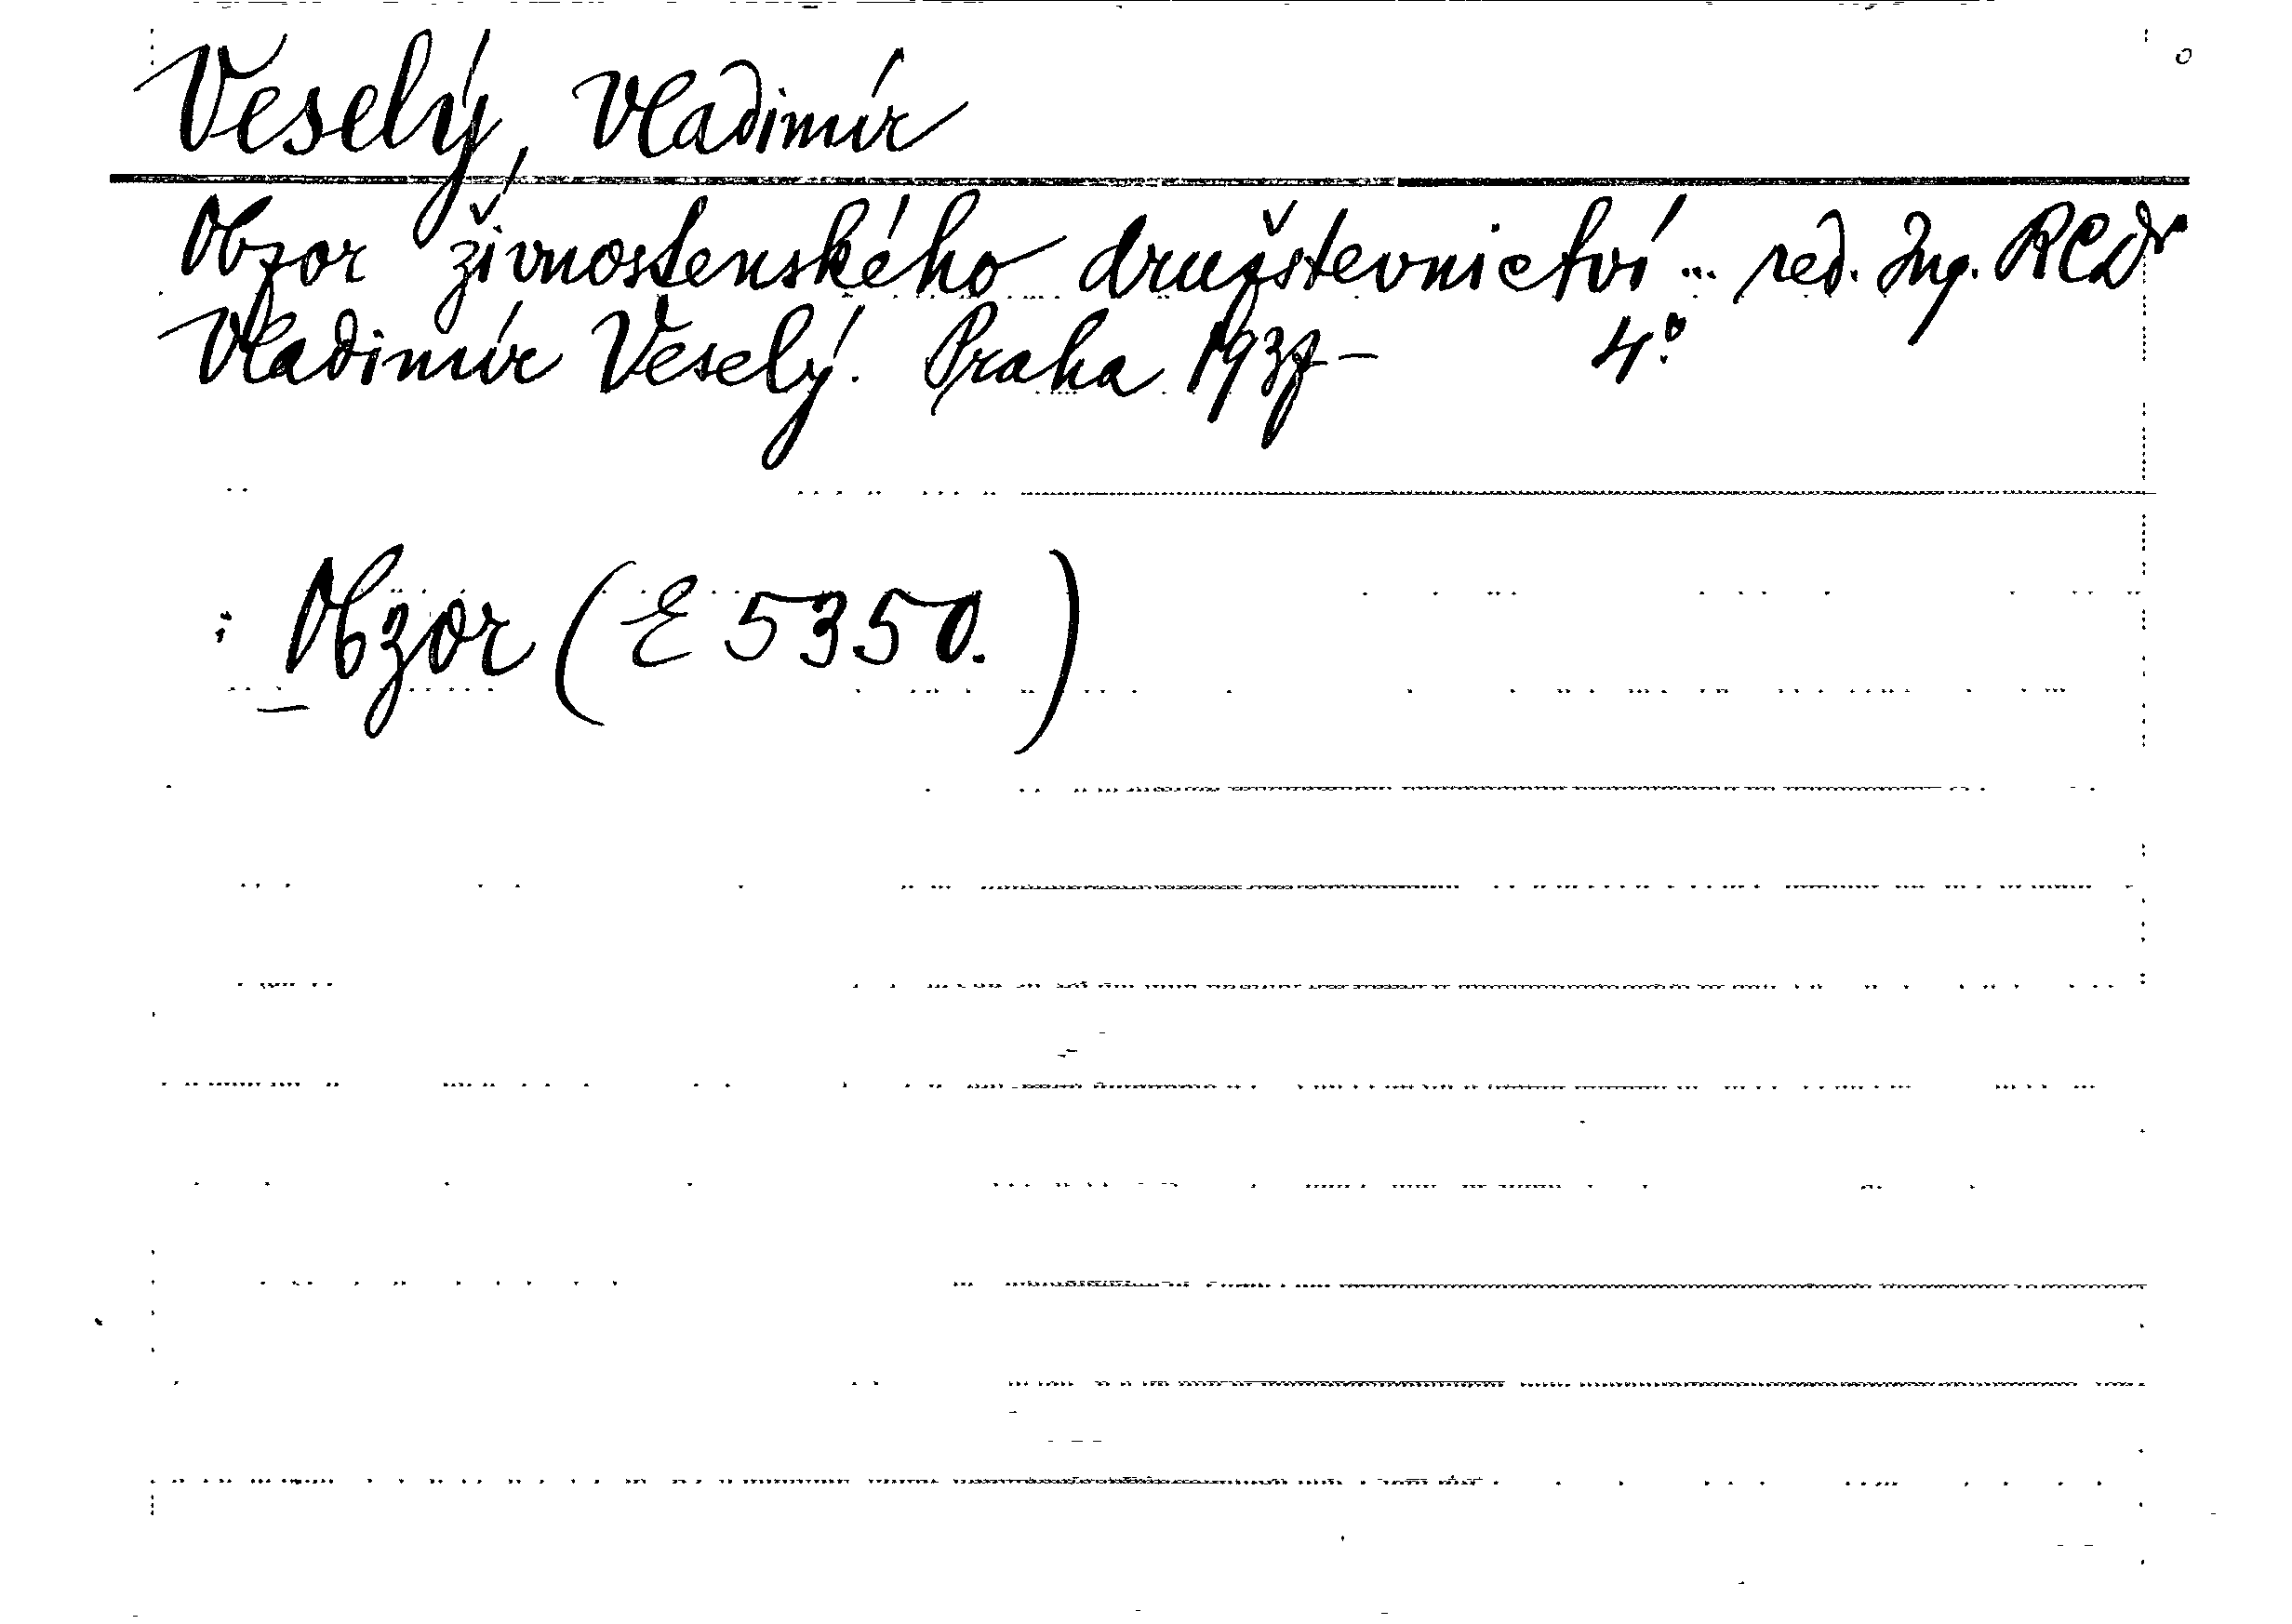 Veselý, Vladimír
Obzor živnostenského družstevnictví... red. Ing. RCDr
Vladimír Veselý. Praha 1937- 4°.
: Obzor (E 5350.)